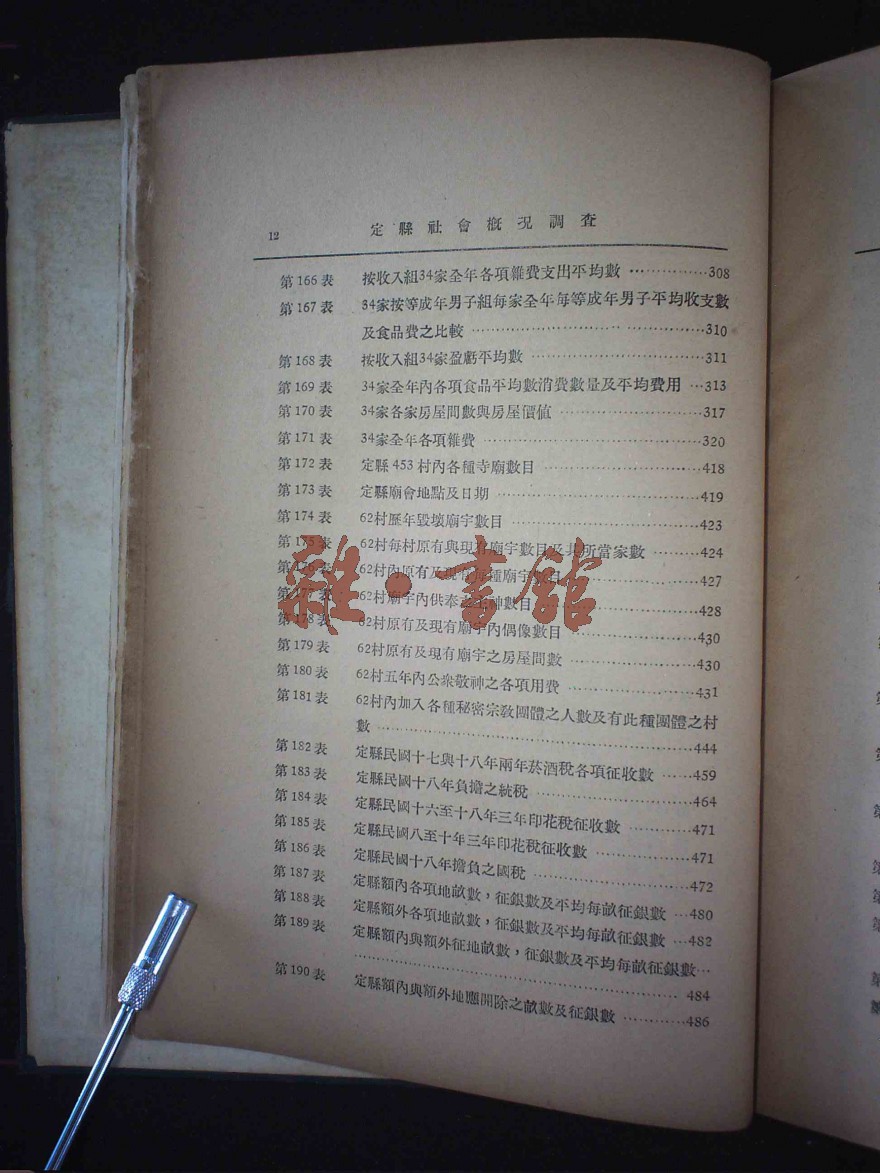 12 定縣社會概況調查
第166表 按收入組34家全年各項雜費支出平均數 ……………308
第167表 34家按等成年男子組每家全年每等成年男子平均收支數
及食品費之比較 ……………310
第168表 按收入組34家盈虧平均數 ……………311
第169表 34家全年內各項食品平均數消費數量及平均費用 …313
第170表 34家各家房屋間數與房屋價值 ……………317
第171表 34家全年各項雜費 ……………320
第172表 定縣453村內各種寺廟數目 ……………418
第173表 定縣廟會地點及日期 ……………419
第174表 62村歷年毀壞廟宇數目 ……………423
第175表 62村每村原有與現有廟宇數目及其所當家數 ………424
第176表 62村內原有及現有每種廟宇數目 ……………427
第177表 62村廟宇內供奉之主神數目 ……………428
第178表 62村原有及現有廟宇內偶像數目 ……………430
第179表 62村原有及現有廟宇之房屋間數 ……………430
第180表 62村五年內公衆敬神之各項用費 ……………431
第181表 62村內加入各種秘密宗敎團體之人數及有此種團體之村
數 ……………444
第182表 定縣民國十七與十八年兩年菸酒稅各項征收數 ……459
第183表 定縣民國十八年負擔之統稅 ……………464
第184表 定縣民國十六至十八年三年印花稅征收數 ………471
第185表 定縣民國八至十年三年印花稅征收數 ……………471
第186表 定縣民國十八年擔負之國稅 ……………472
第187表 定縣額內各項地畝數，征銀數及平均每畝征銀數 …480
第188表 定縣額外各項地畝數，征銀數及平均每畝征銀數 …482
第189表 定縣額內與額外征地畝數，征銀數及平均每畝征銀數…
……………484
第190表 定縣額內與額外地應開除之畝數及征銀數 …………486
雜·書館